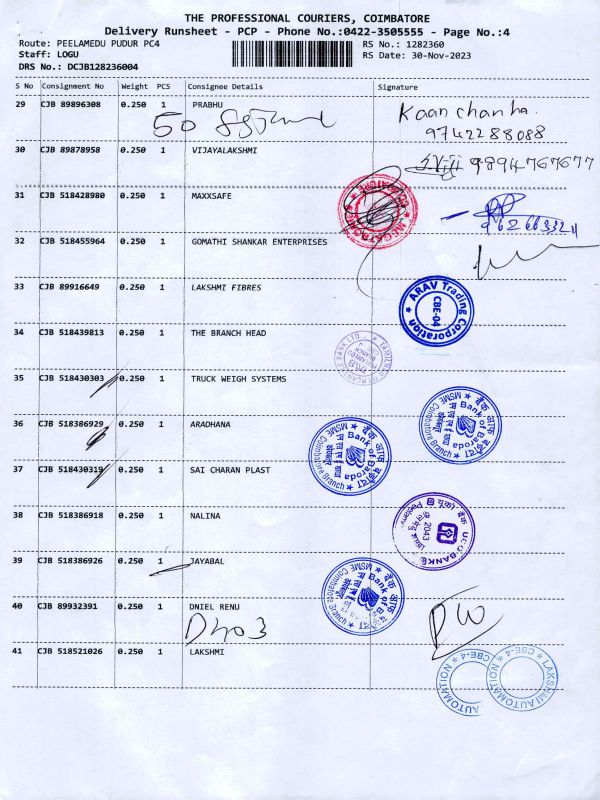 THE PROFESSIONAL COURIERS, COIMBATORE
Delivery Runsheet - PCP - Phone No.:0422-3505555 - Page No.:4
Route: PEELAMEDU PUDUR PC4 RS No.: 1282360
Staff: LOGU RS Date: 30-Nov-2023
DRS No.: DCJB128236004
S No Consignment No Weight PCS Consignee Details Signature
29 CJB 89896308 0.250 1 PRABHU
Kaanchanha.
9742288088
50
30 CJB 89878958 0.250 1 VIJAYALAKSHMI
9894767677
31 CJB 518428980 0.250 1 MAXXSAFE
32 CJB 518455964 0.250 1 GOMATHI SHANKAR ENTERPRISES
33 CJB 89916649 0.250 1 LAKSHMI FIBRES
ARAV Trading Corporation
CBE-04
34 CJB 518439813 0.250 1 THE BRANCH HEAD
35 CJB 518430303 0.250 1 TRUCK WEIGH SYSTEMS
36 CJB 518386929 0.250 1 ARADHANA
Bank of Baroda
MSME Coimbatore Branch
Bank of Baroda
MSME Coimbatore Branch
37 CJB 518430319 0.250 1 SAI CHARAN PLAST
38 CJB 518386918 0.250 1 NALINA
UCO BANK
2043
39 CJB 518386926 0.250 1 JAYABAL
Bank of Baroda
MSME Coimbatore Branch
40 CJB 89932391 0.250 1 DNIEL RENU
D403
41 CJB 518521026 0.250 1 LAKSHMI
AUTOMATION CBE-4
LAKSHMI AUTOMATION CBE-4